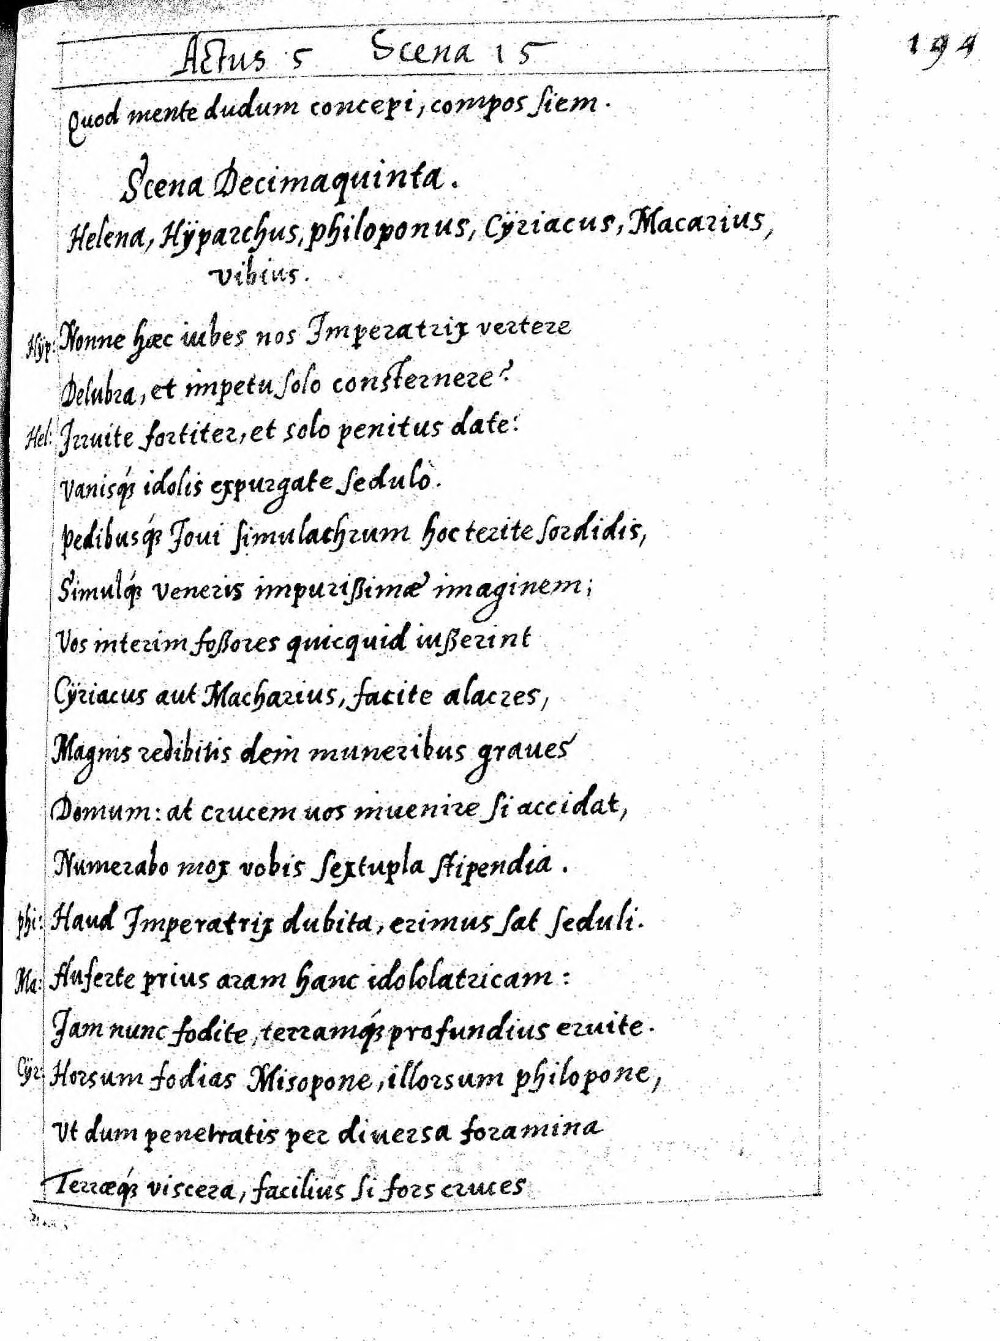 Actus 5 Scena 15
194
Quod mente dudum concepi, compos siem.
Scena Decimaquinta.
Helena, Hÿparchus, philoponus, Cÿriacus, Macarius,
vibius.
Hÿp: Nonne hæc iubes nos Imperatrix vertere
Delubra, et impetu solo consternere?
Hel: Irruite fortiter, et solo penitus date:
Vanisq́ꝫ idolis expurgate sedulò.
pedibusq́ꝫ Joui simulachrum hoc terite sordidis,
Simulq́ꝫ veneris impurißimæ imaginem;
Vos interim foßores quicquid iußerint
Cÿriacus aut Macharius, facite alacres,
Magnis redibitis dein muneribus graues
Domum: at crucem uos inuenire si accidat,
Numerabo mox vobis sextupla stipendia.
phi: Haud Imperatrix dubita, erimus sat seduli.
Ma: Auferte prius aram hanc idololatricam:
Jam nunc fodite, terramq́ꝫ profundius eruite.
Cÿr: Horsum fodias Misopone, illorsum philopone,
Vt dum penetratis per diuersa foramina
Terræq́ꝫ viscera, facilius si fors cruces